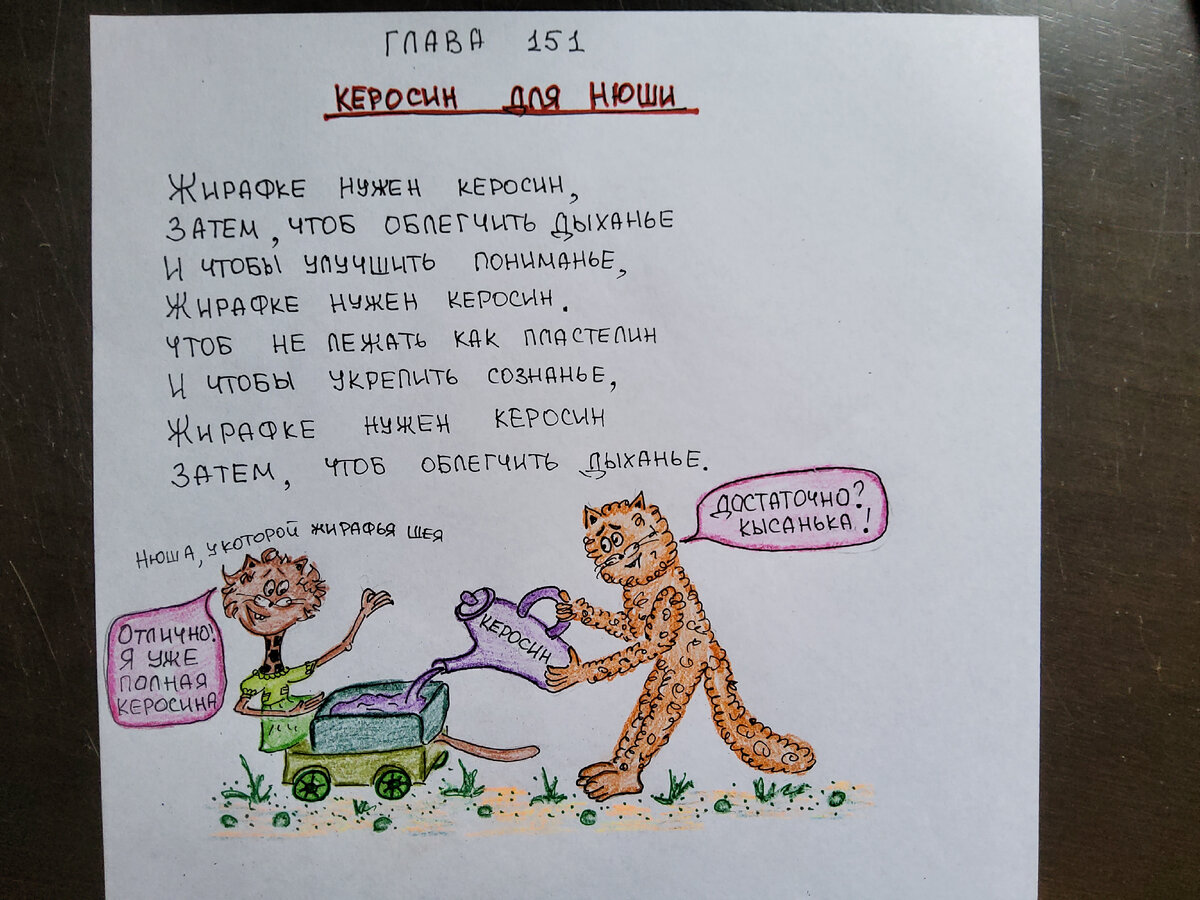 ГЛАВА 151
КЕРОСИН ДЛЯ НЮШИ
ЖИРАФКЕ НУЖЕН КЕРОСИН,
ЗАТЕМ, ЧТОБ ОБЛЕГЧИТЬ ДЫХАНЬЕ
И ЧТОБЫ УЛУЧШИТЬ ПОНИМАНЬЕ,
ЖИРАФКЕ НУЖЕН КЕРОСИН.
ЧТОБ НЕ ЛЕЖАТЬ КАК ПЛАСТЕЛИН
И ЧТОБЫ УКРЕПИТЬ СОЗНАНЬЕ,
ЖИРАФКЕ НУЖЕН КЕРОСИН
ЗАТЕМ, ЧТОБ ОБЛЕГЧИТЬ ДЫХАНЬЕ.
ДОСТАТОЧНО?
КЫСАНЬКА!
НЮША, У КОТОРОЙ ЖИРАФЬЯ ШЕЯ
ОТЛИЧНО!
Я УЖЕ
ПОЛНАЯ
КЕРОСИНА
КЕРОСИН